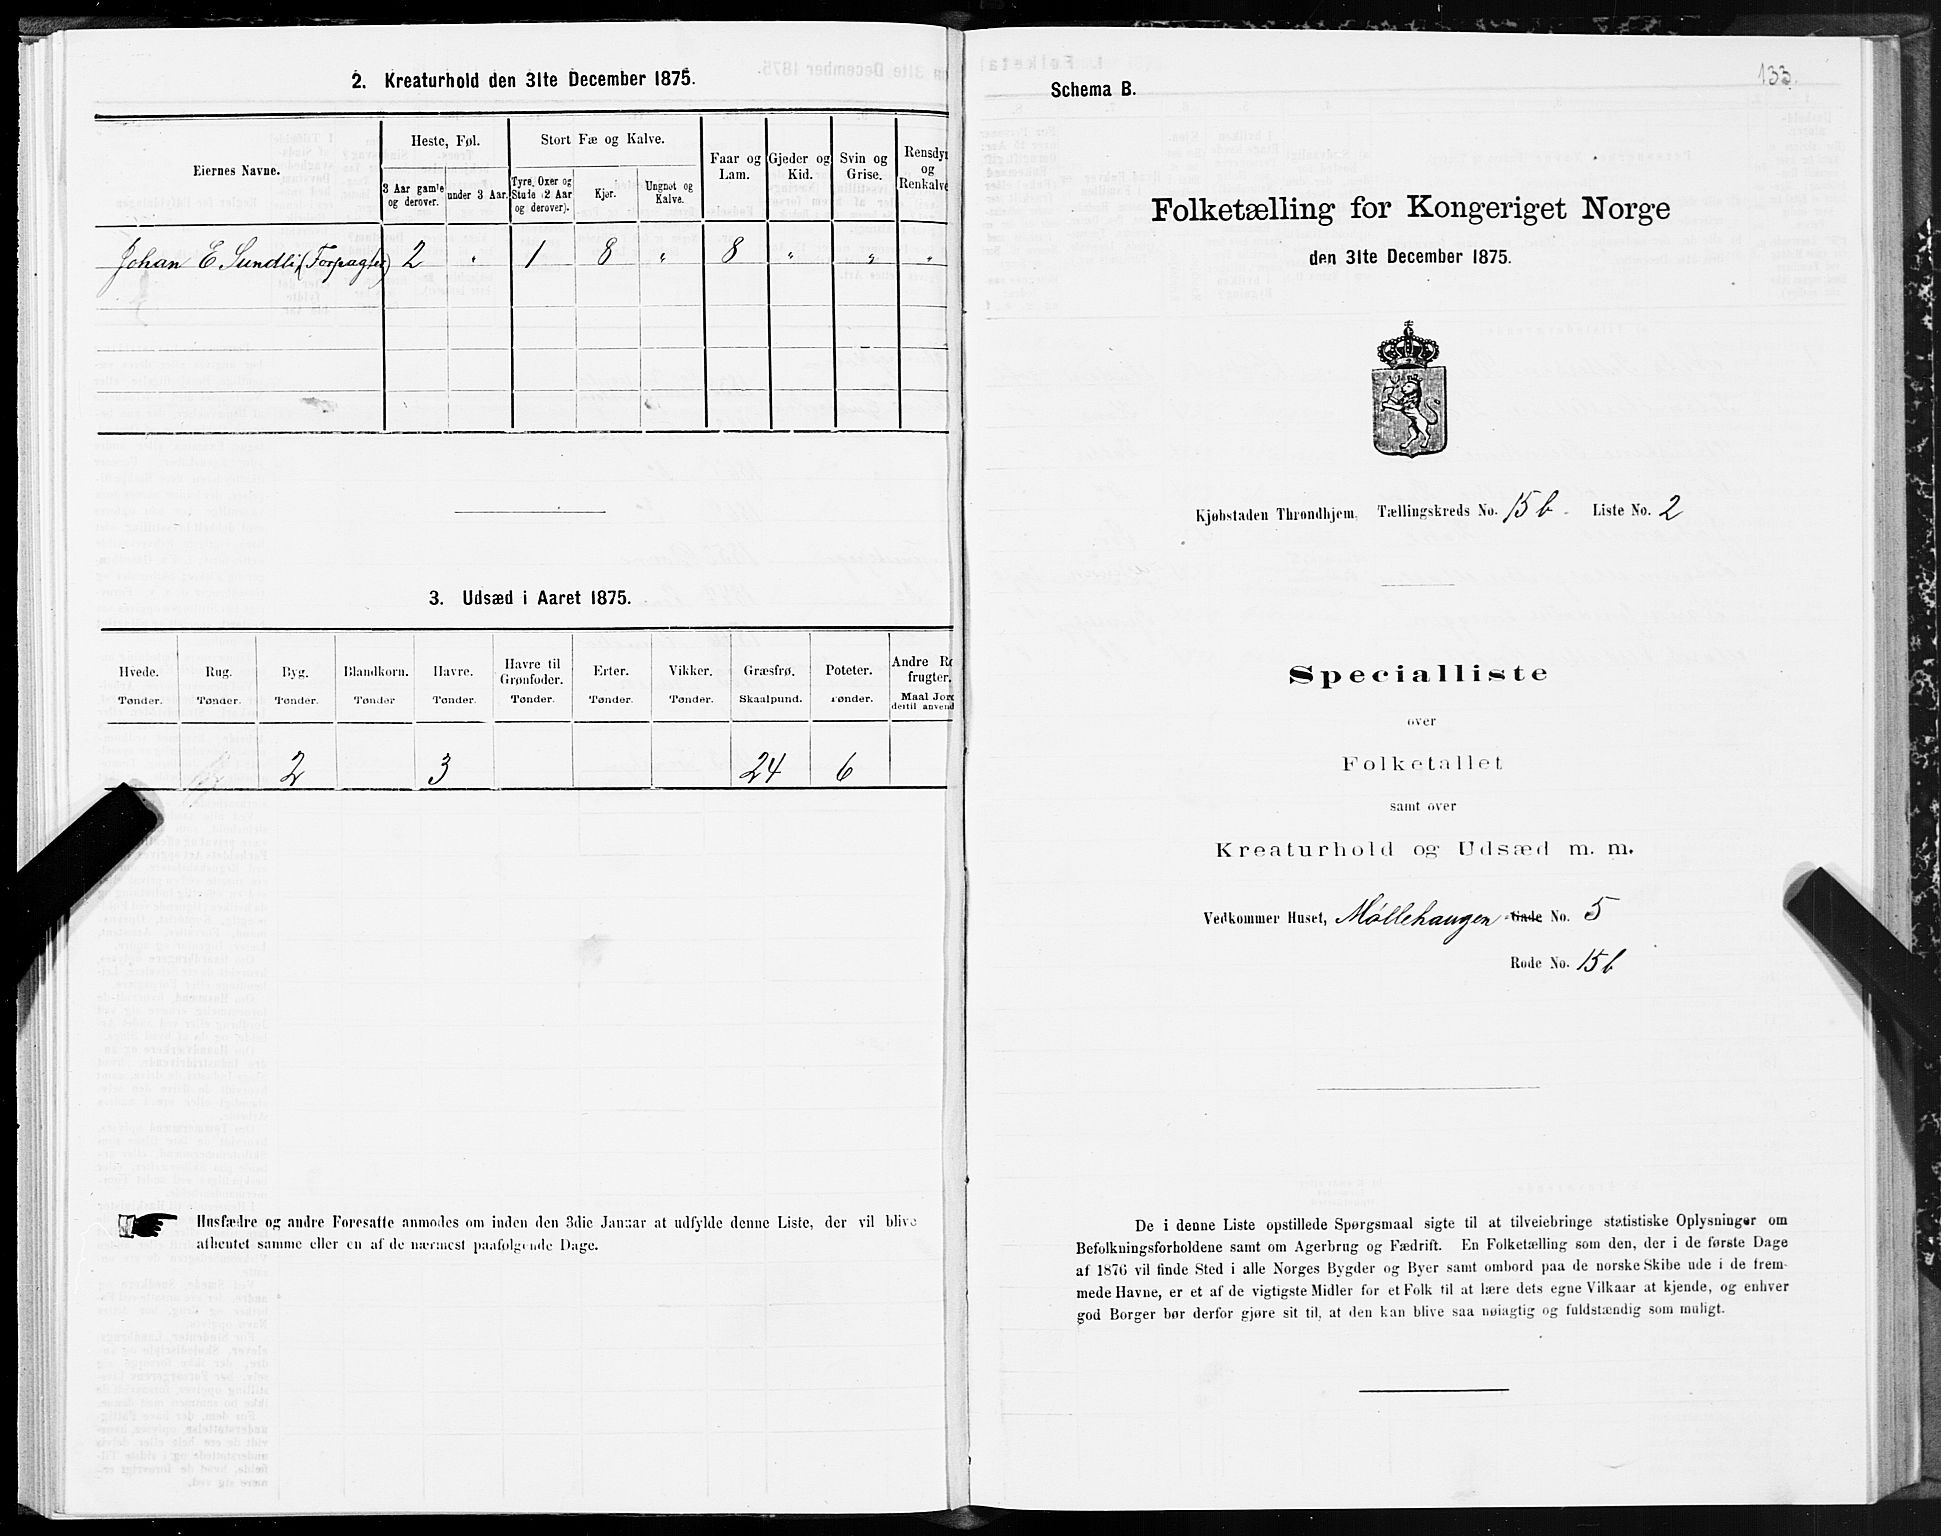 2. Kreaturhold den 31te December 1875.
Eiernes Navne.
Heste, Føl.
Stort Fæ og Kalve.
Faar og Lam.
Gjeder og Kid.
Svin og Grise.
Rensdyr og Renkalve
3 Aar gamle og derover.
under 3 Aar.
Tyre, Oxer og Stude (2 Aar og derover).
Kjør.
Ungnøt og Kalve.
Johan E Sundli (Forpagter) 2 " 1 8 " 8 " " "
3. Udsæd i Aaret 1875.
Hvede. Rug. Byg. Blandkorn. Havre. Havre til Grønfoder. Erter. Vikker. Græsfrø. Poteter. Andre Ro frugter.
Tønder. Tønder. Tønder. Tønder Tønder. Tønder. Tønder. Tønder. Skaalpund. Tønder. Maal Jord dertil anvend
2 3 24 6
Husfædre og andre Foresatte anmodes om inden den 3die Januar at udfylde denne Liste, der vil blive
afhentet samme eller en af de nærmest paafølgende Dage.
133.
Schema B.
Folketælling for Kongeriget Norge
den 31te December 1875.
Kjøbstaden Throndhjem. Tællingskreds No. 15b. Liste No. 2
Specialliste
over
Folketallet
samt over
Kreaturhold og Udsæd m. m.
Vedkommer Huset, Møllehaugen Gade No. 5
Rode No. 15b
De i denne Liste opstillede Spørgsmaal sigte til at tilveiebringe statistiske Oplysninger om
Befolkningsforholdene samt om Agerbrug og Fædrift. En Folketælling som den, der i de første Dage
af 1876 vil finde Sted i alle Norges Bygder og Byer samt ombord paa de norske Skibe ude i de frem-
mede Havne, er et af de vigtigste Midler for et Folk til at lære dets egne Vilkaar at kjende, og enhver
god Borger bør derfor gjøre sit til, at den kan blive saa nøiagtig og fuldstændig som muligt.